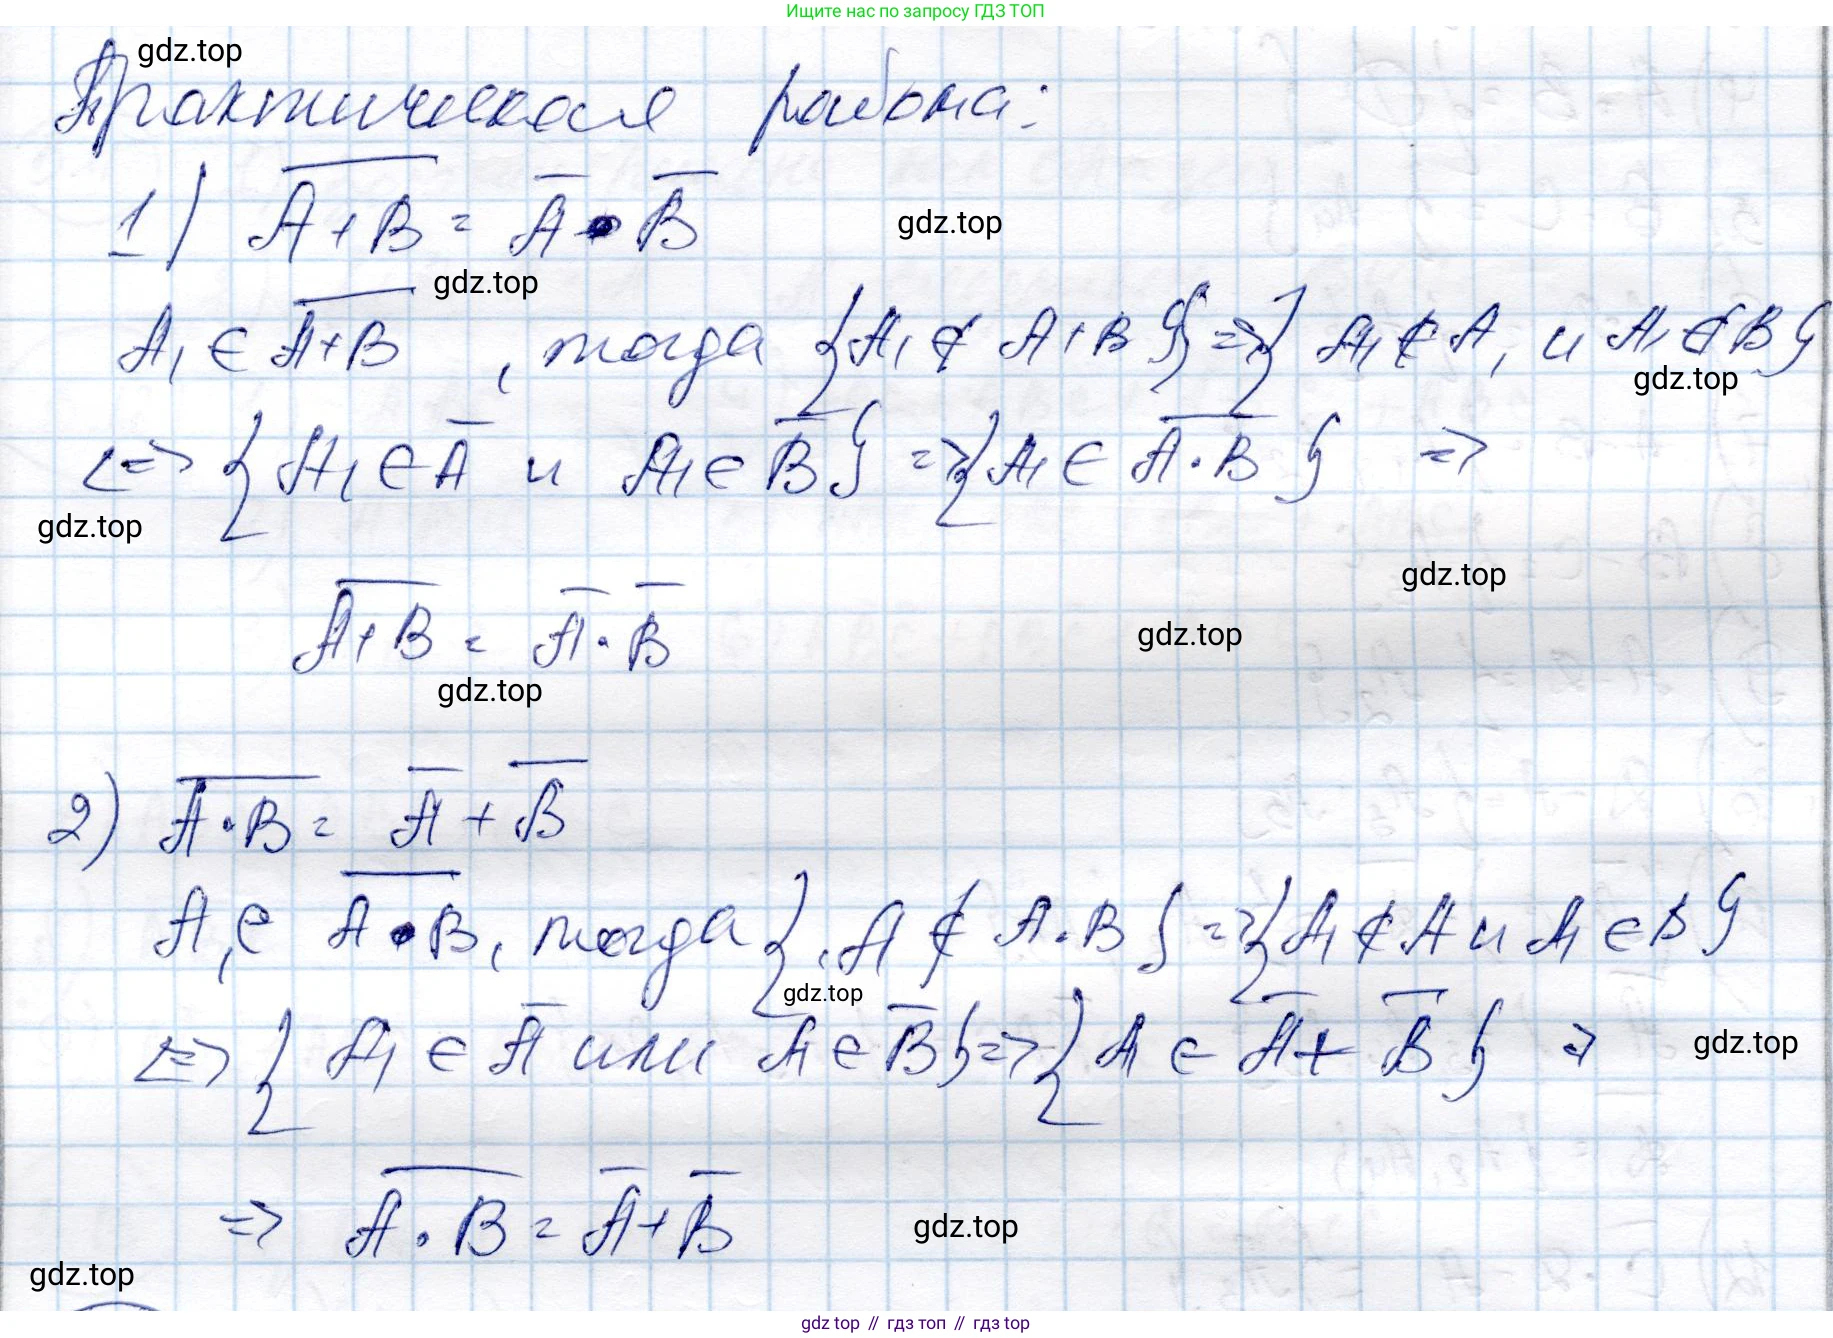 Ищите нас по запросу ГДЗ ТОП
gdz.top
Практическая работа:
1) \overline{A+B} = \overline{A} · \overline{B}
gdz.top
gdz.top
A₁ ∈ \overline{A+B}, тогда {A₁ ∉ A+B} => {A₁ ∉ A, и A₁ ∉ B}
gdz.top
<=> {A₁ ∈ \overline{A} и A₁ ∈ \overline{B}} => {A₁ ∈ \overline{A·B}} =>
gdz.top
gdz.top
\overline{A+B} = \overline{A} · \overline{B}
gdz.top
gdz.top
2) \overline{A·B} = \overline{A} + \overline{B}
A₁ ∈ \overline{A·B}, тогда {A ∉ A·B} => {A₁ ∉ A и A₁ ∈ B}
gdz.top
<=> {A₁ ∈ \overline{A} или A₁ ∈ \overline{B}} => {A₁ ∈ \overline{A} + \overline{B}} =>
gdz.top
=> \overline{A·B} = \overline{A} + \overline{B}
gdz.top
gdz.top
gdz top // гдз топ // гдз top